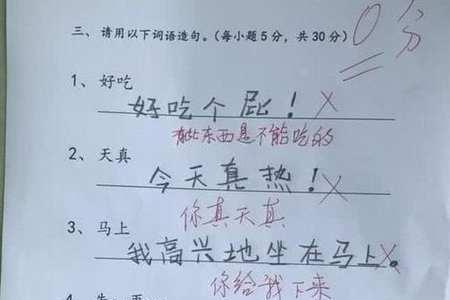 三、请用以下词语造句。(每小题5分，共30分)
0分
1、好吃
好吃个屁！ ×
有些东西是不能吃的
2、天真
今天真热！ ×
你真天真
3、马上
我高兴地坐在马上。 ×
你给我下来